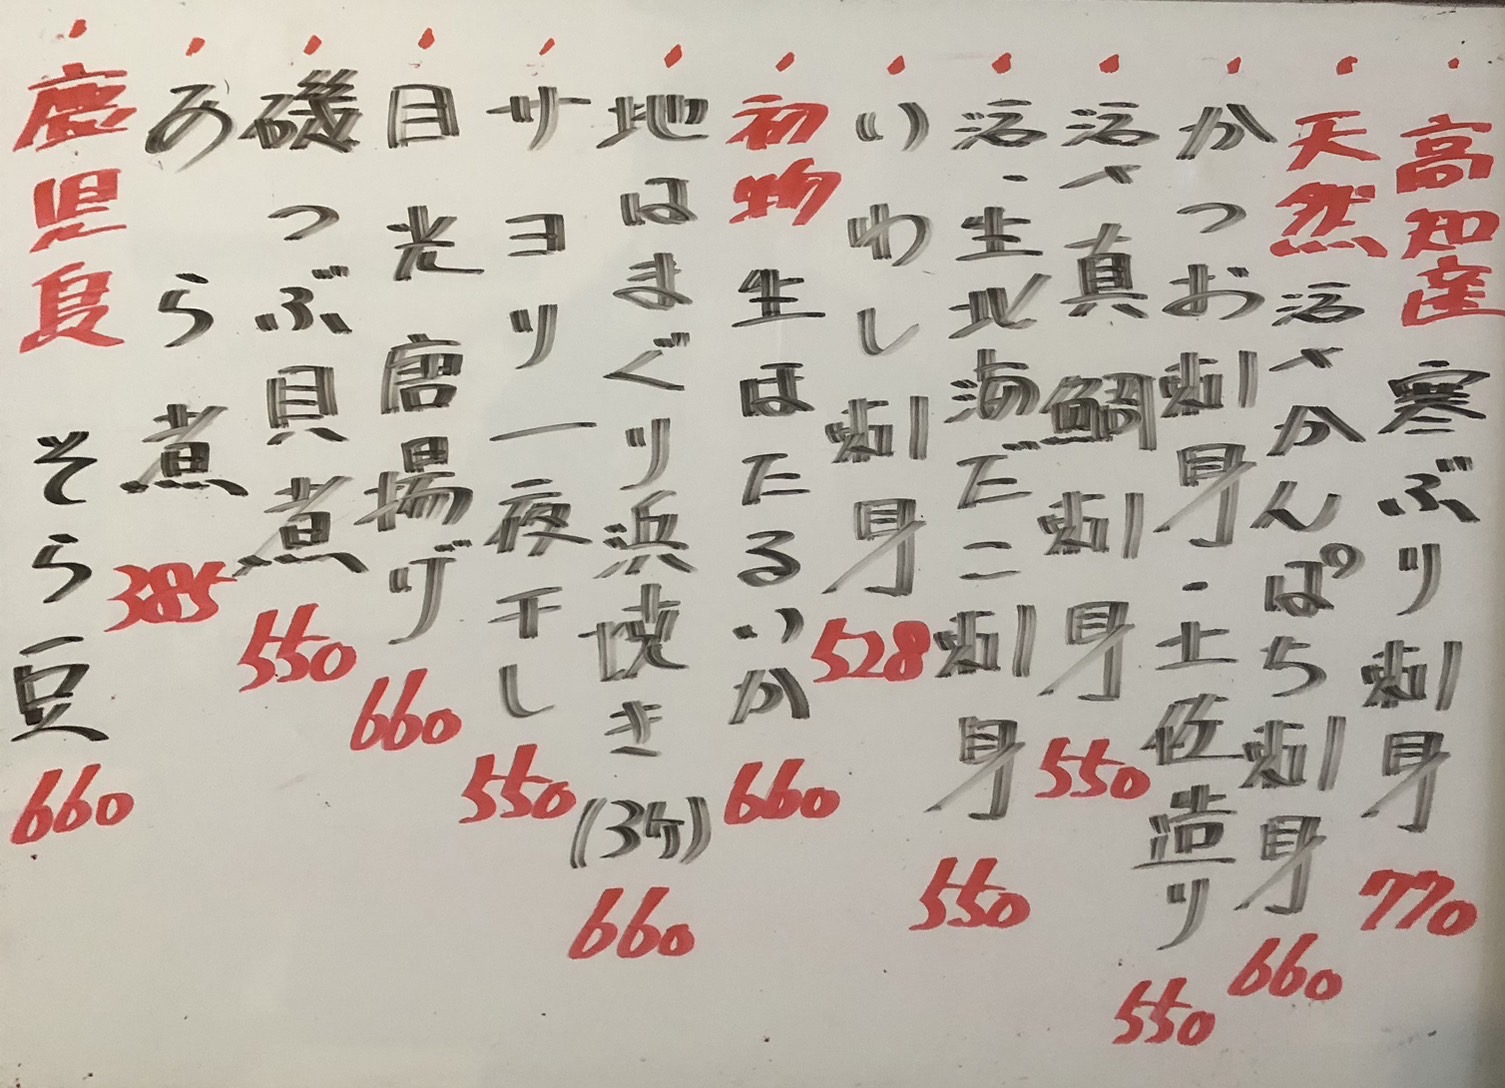 ・高知産 寒ぶり刺身 770
・天然 活〆かんぱち刺身 660
・かつお刺身・土佐造り 550
・活〆真鯛刺身 550
・活・生北海だこ刺身 550
・いわし刺身 528
・初物 生ほたるいか 660
・地はまぐり浜焼き(3ケ) 660
・サヨリ一夜干し 550
・目光唐揚げ 660
・磯つぶ貝煮 550
・あら煮 385
・鹿児島 そら豆 660